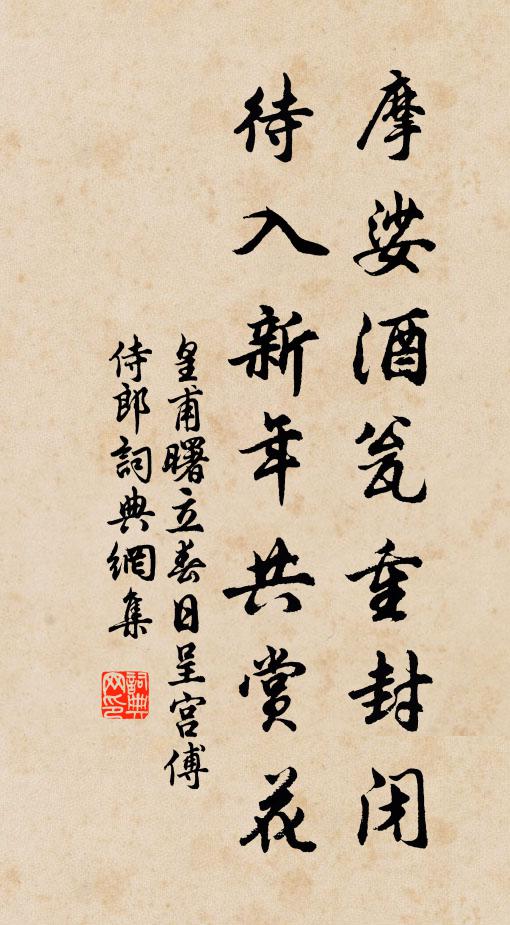 摩娑酒瓮重封闭
待入新年共赏花
皇甫曙立春日呈宫傅
侍郎詞典網集
詞典
网印